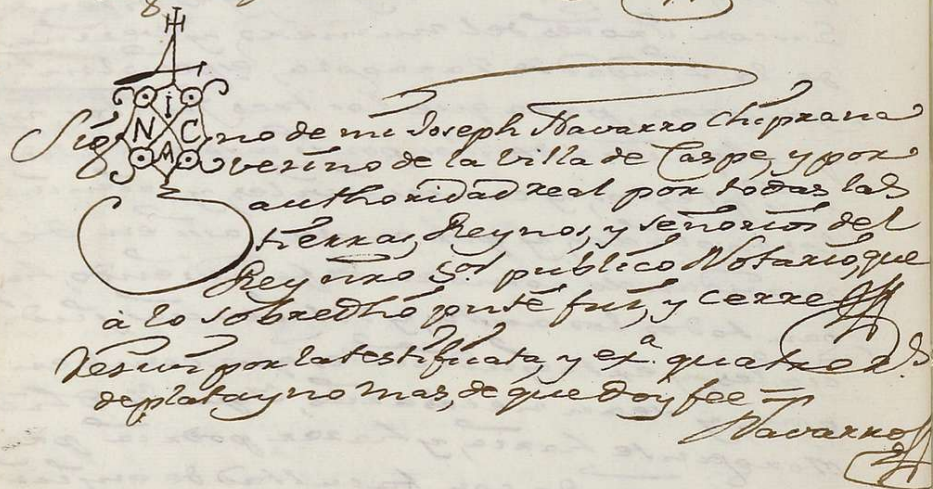 Sig no de mi Joseph Navarro Chiprana
I N C A
vezino de la Villa de Caspe, y por
authoridad real por todas las
tierras, Reynos, y señorios del
Rey nro Sor publico Notario, que
à lo sobredho pnte fui, y cerre
Reciui por la testificata, y exa. quatro
de plata y no mas, de que doy fee
Navarro